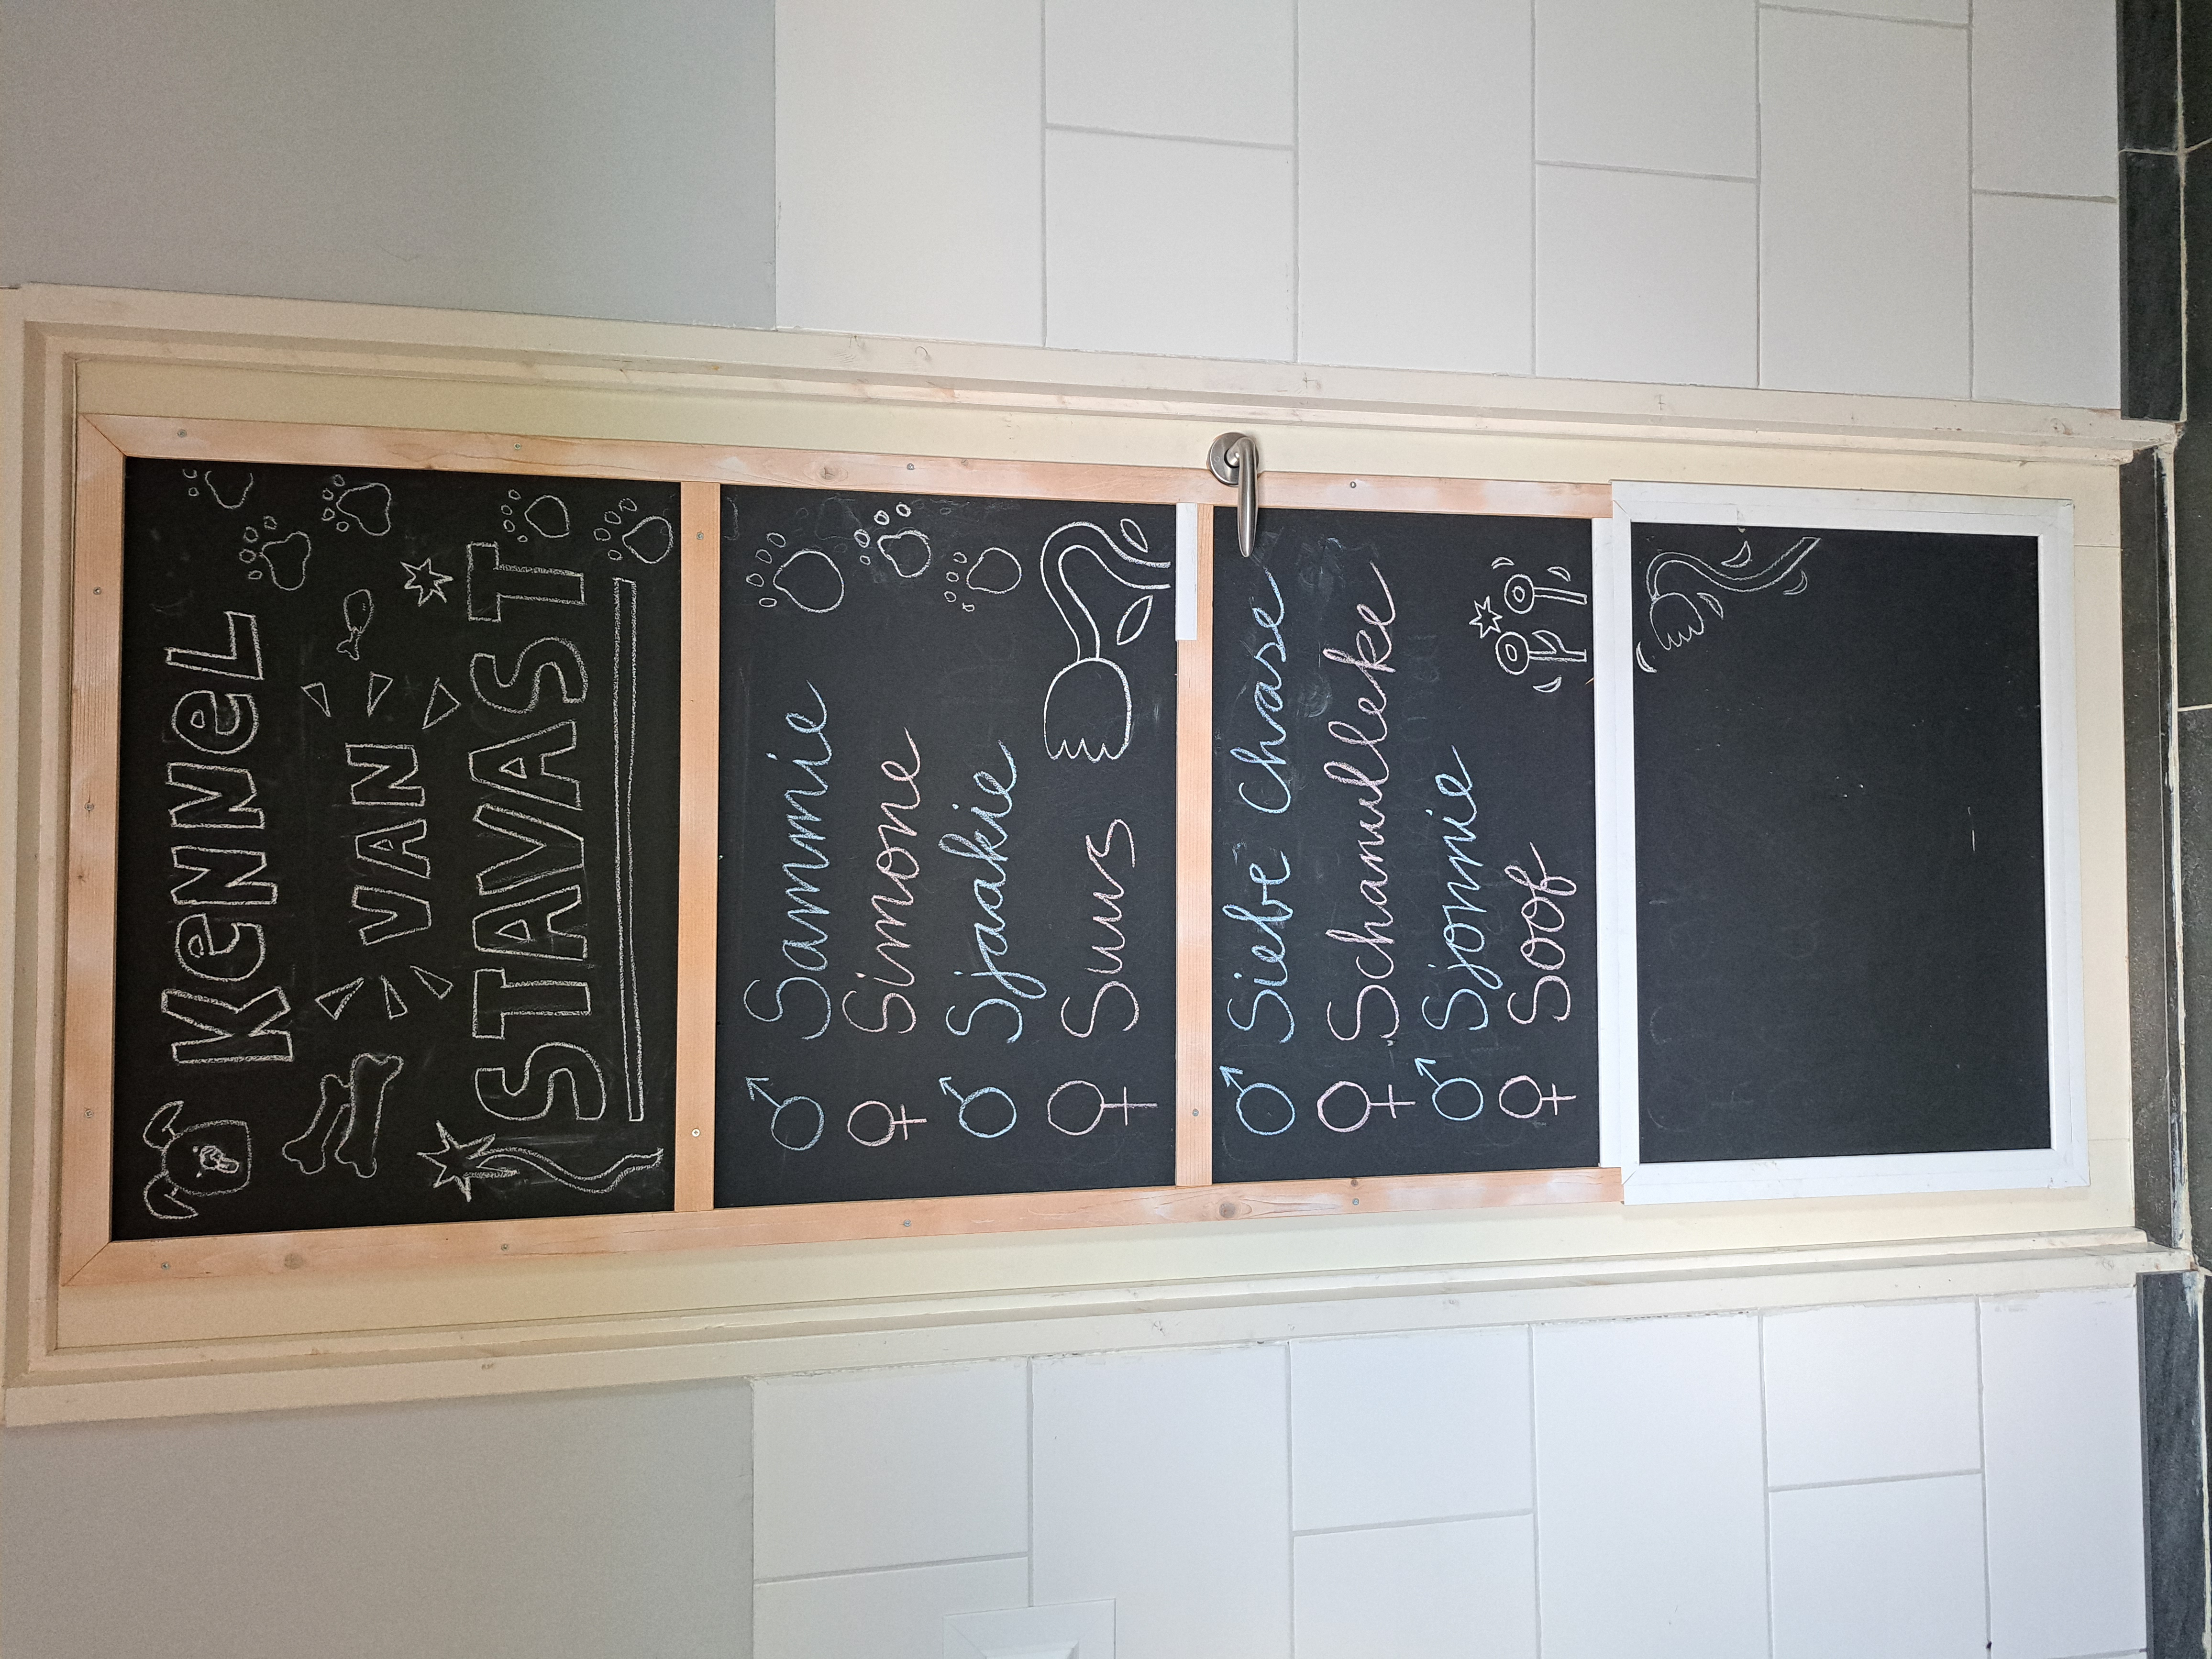 KeNNeL
VAN
STAVAST
♂ Sammie
♀ Simone
♂ Sjaakie
♀ Suus
♂ Siebe Chase
♀ Schanulleke
♂ Sjonnie
♀ Soof